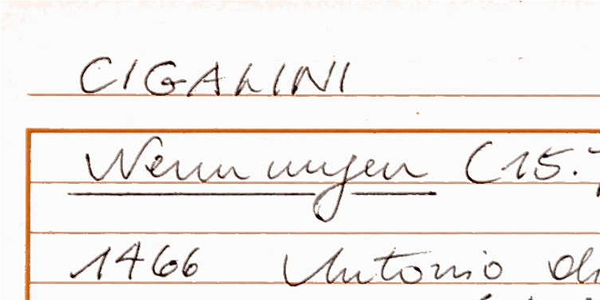 CIGALINI
Nennungen (15.
1466 Antonio